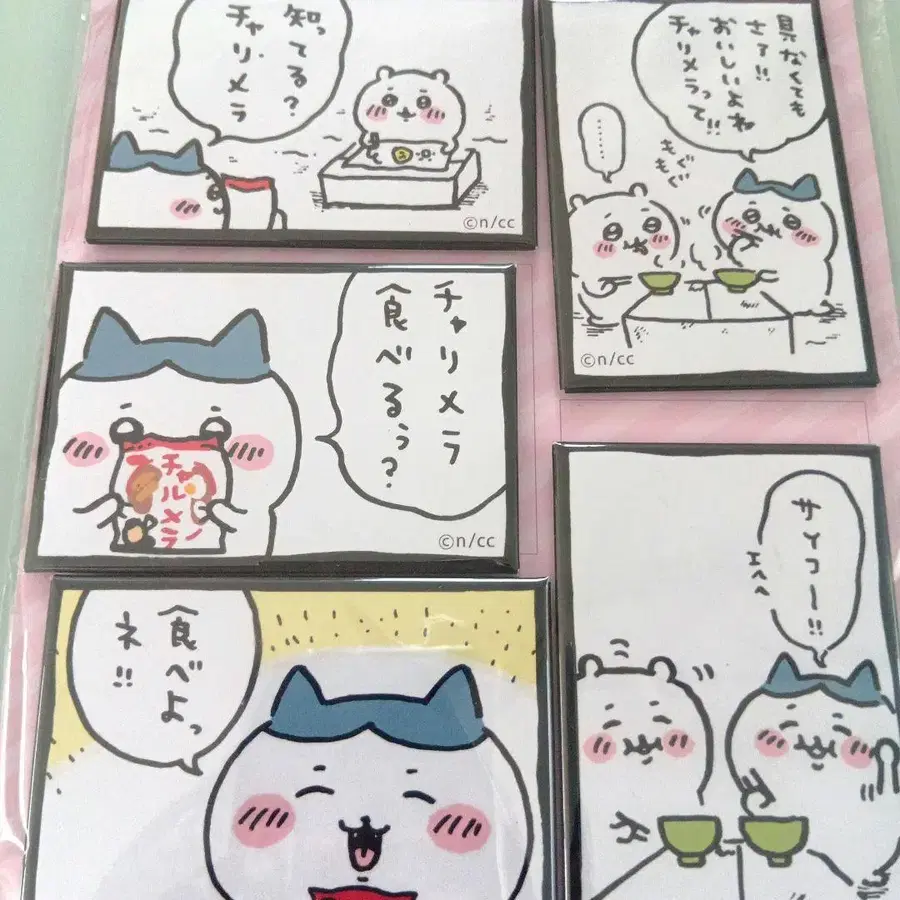 知ってる?
チャリメラ
©n/cc
具なくても
さァ!!
おいしいよね
チャリメラって!!
………
もぐ
もぐ
©n/cc
チャリメラ
食べるぅ?
チャルメラ
©n/cc
食べよっ
ネ!!
サイコー!!
エヘヘ